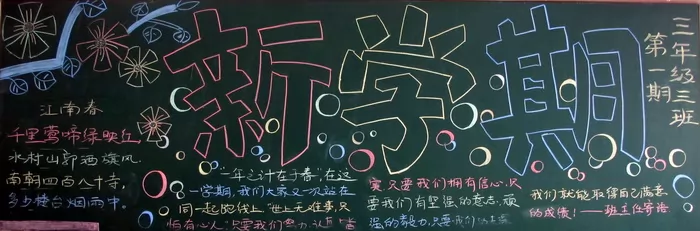 新学期
三年级三班
第一期
江南春
千里莺啼绿映红
水村山郭酒旗风.
南朝四百八十寺,
多少楼台烟雨中.
"一年之计在于春",在这
一学期,我们大家又一次站在
同一起跑线上,"世上无难事,只
怕有心人",只要我们努力、认真、踏
实,只要我们拥有信心,只
要我们有坚强的意志,顽
强的毅力,只要我们
我们就能取得自己满意
的成绩!——班主任寄语